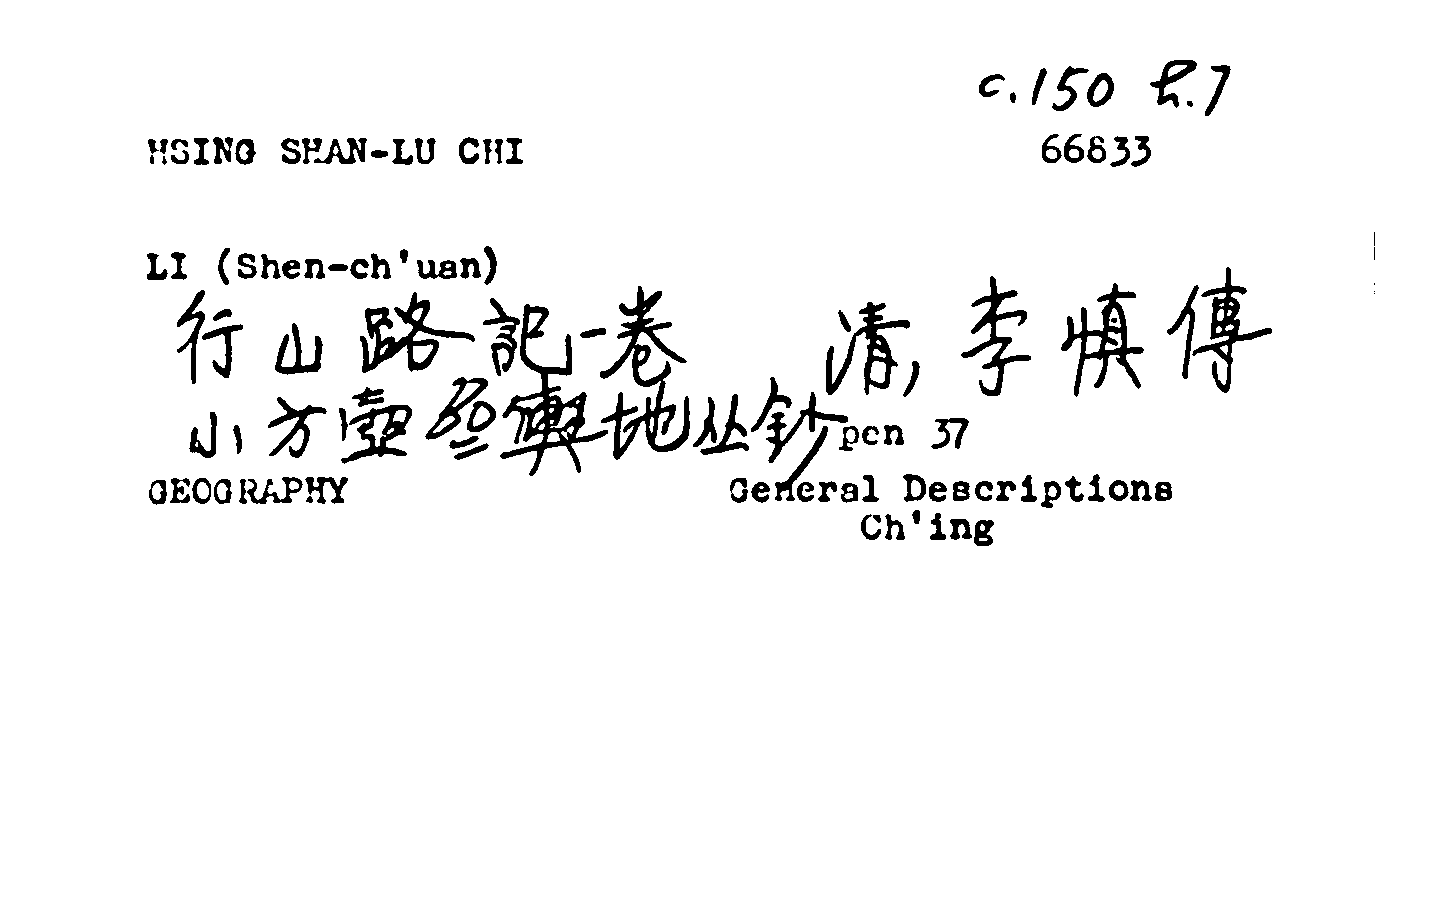 c.150 h.7
HSING SHAN-LU CHI 66833
LI (Shen-ch'uan)
行山路記一卷 清,李慎傳
小方壺齋輿地丛鈔 pen 37
GEOGRAPHY General Descriptions
Ch'ing